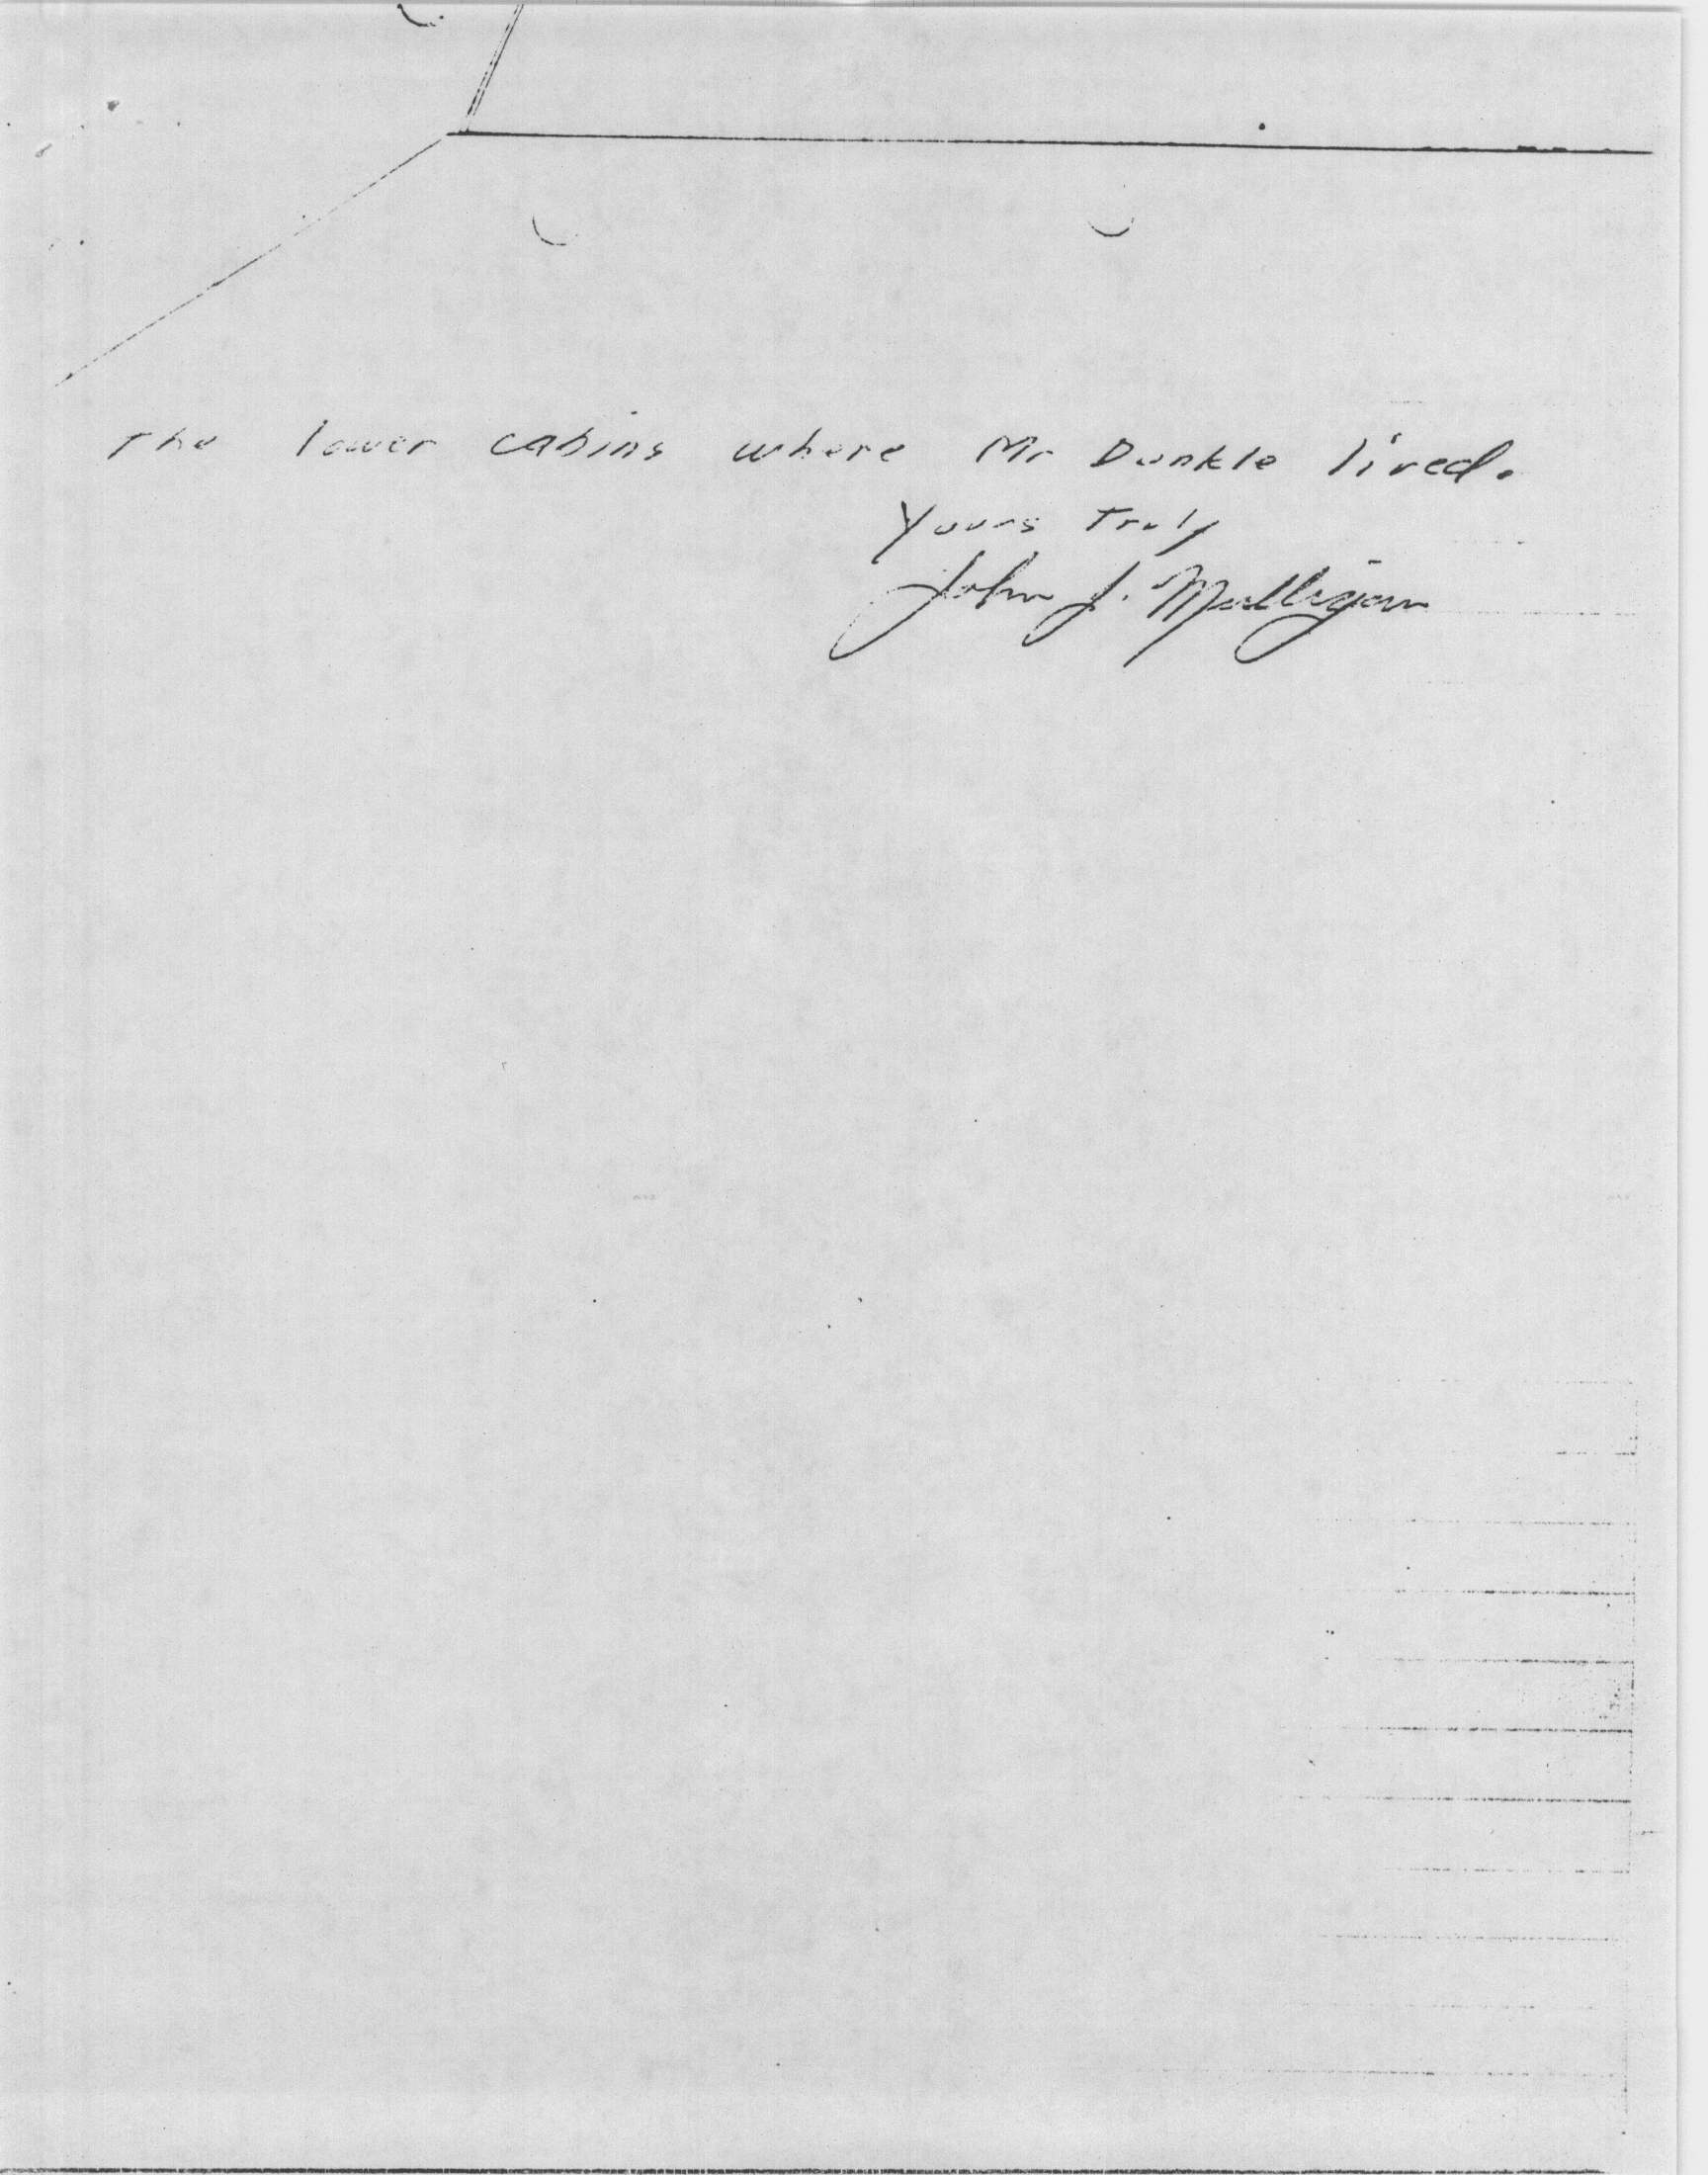 The lower cabins where Mr Dunkle lived.
Yours Truly
John J. Mulligan